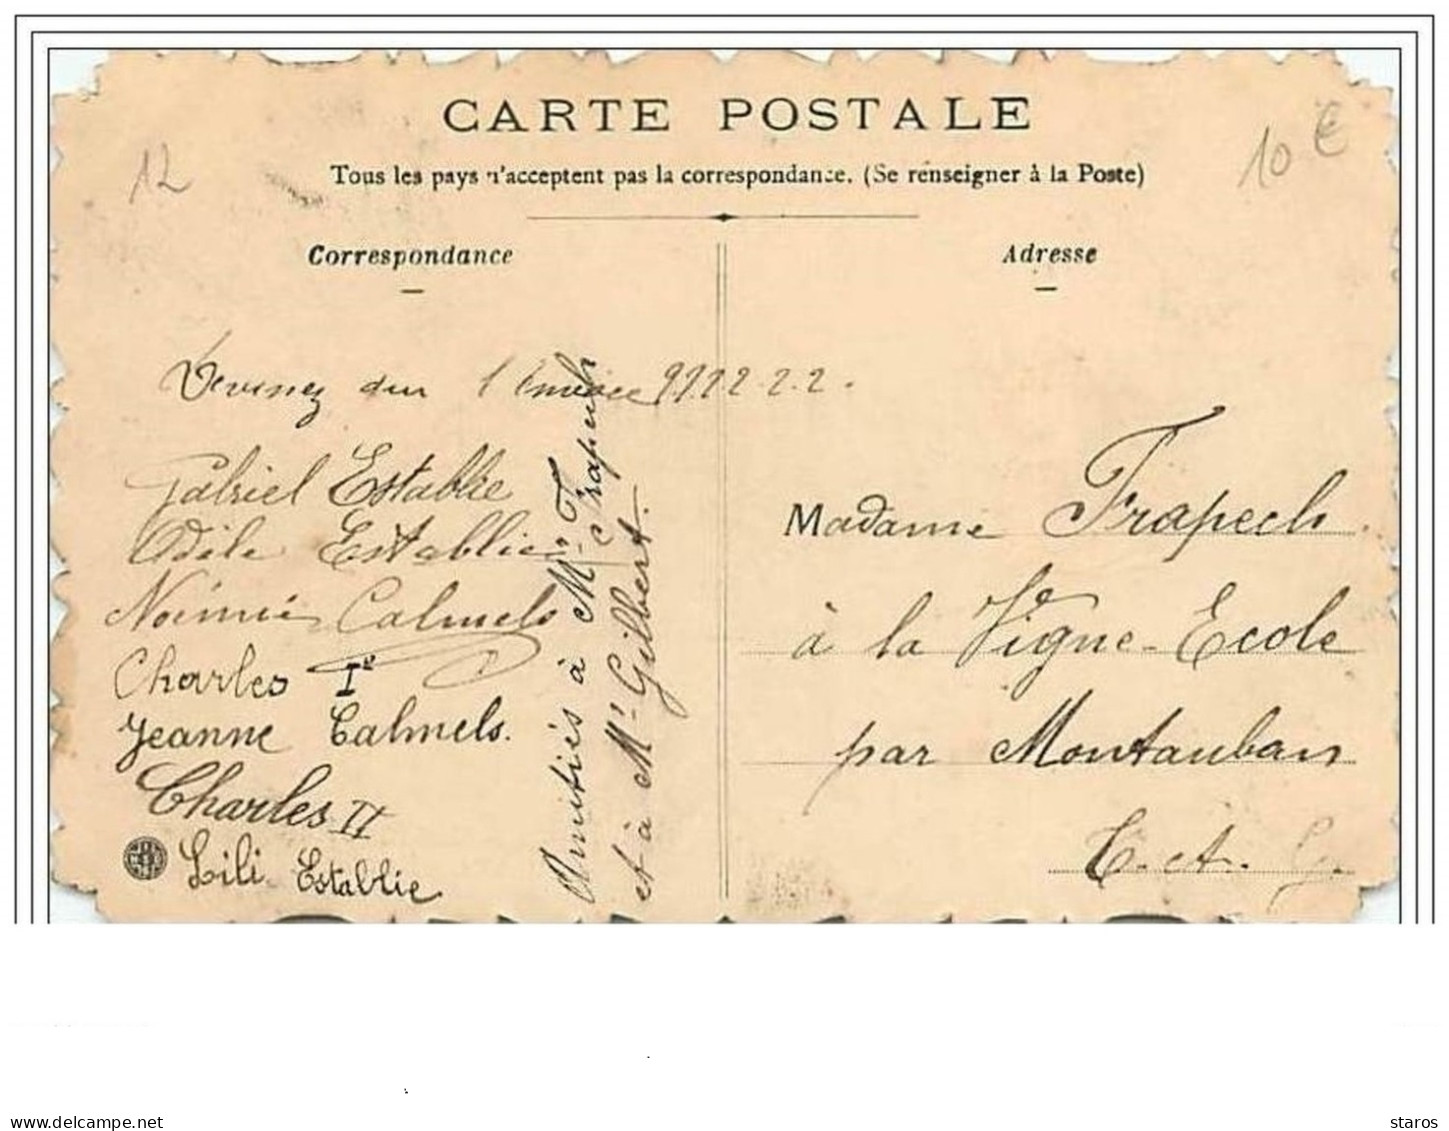 CARTE POSTALE
Tous les pays n'acceptent pas la correspondance. (Se renseigner à la Poste)
12
10 €
Correspondance
Devinez
Gabriel Establie
Odile Establie
Noémie Calmels
Charles Ier
Jeanne Calmels.
Charles II
Lili Establie
Amitiés à Mr Frapech
et à Mr Gilbert.
Adresse
Madame Frapech
à la Vigne-Ecole
par Montauban
T. et. G.
www.delcampe.net
staros